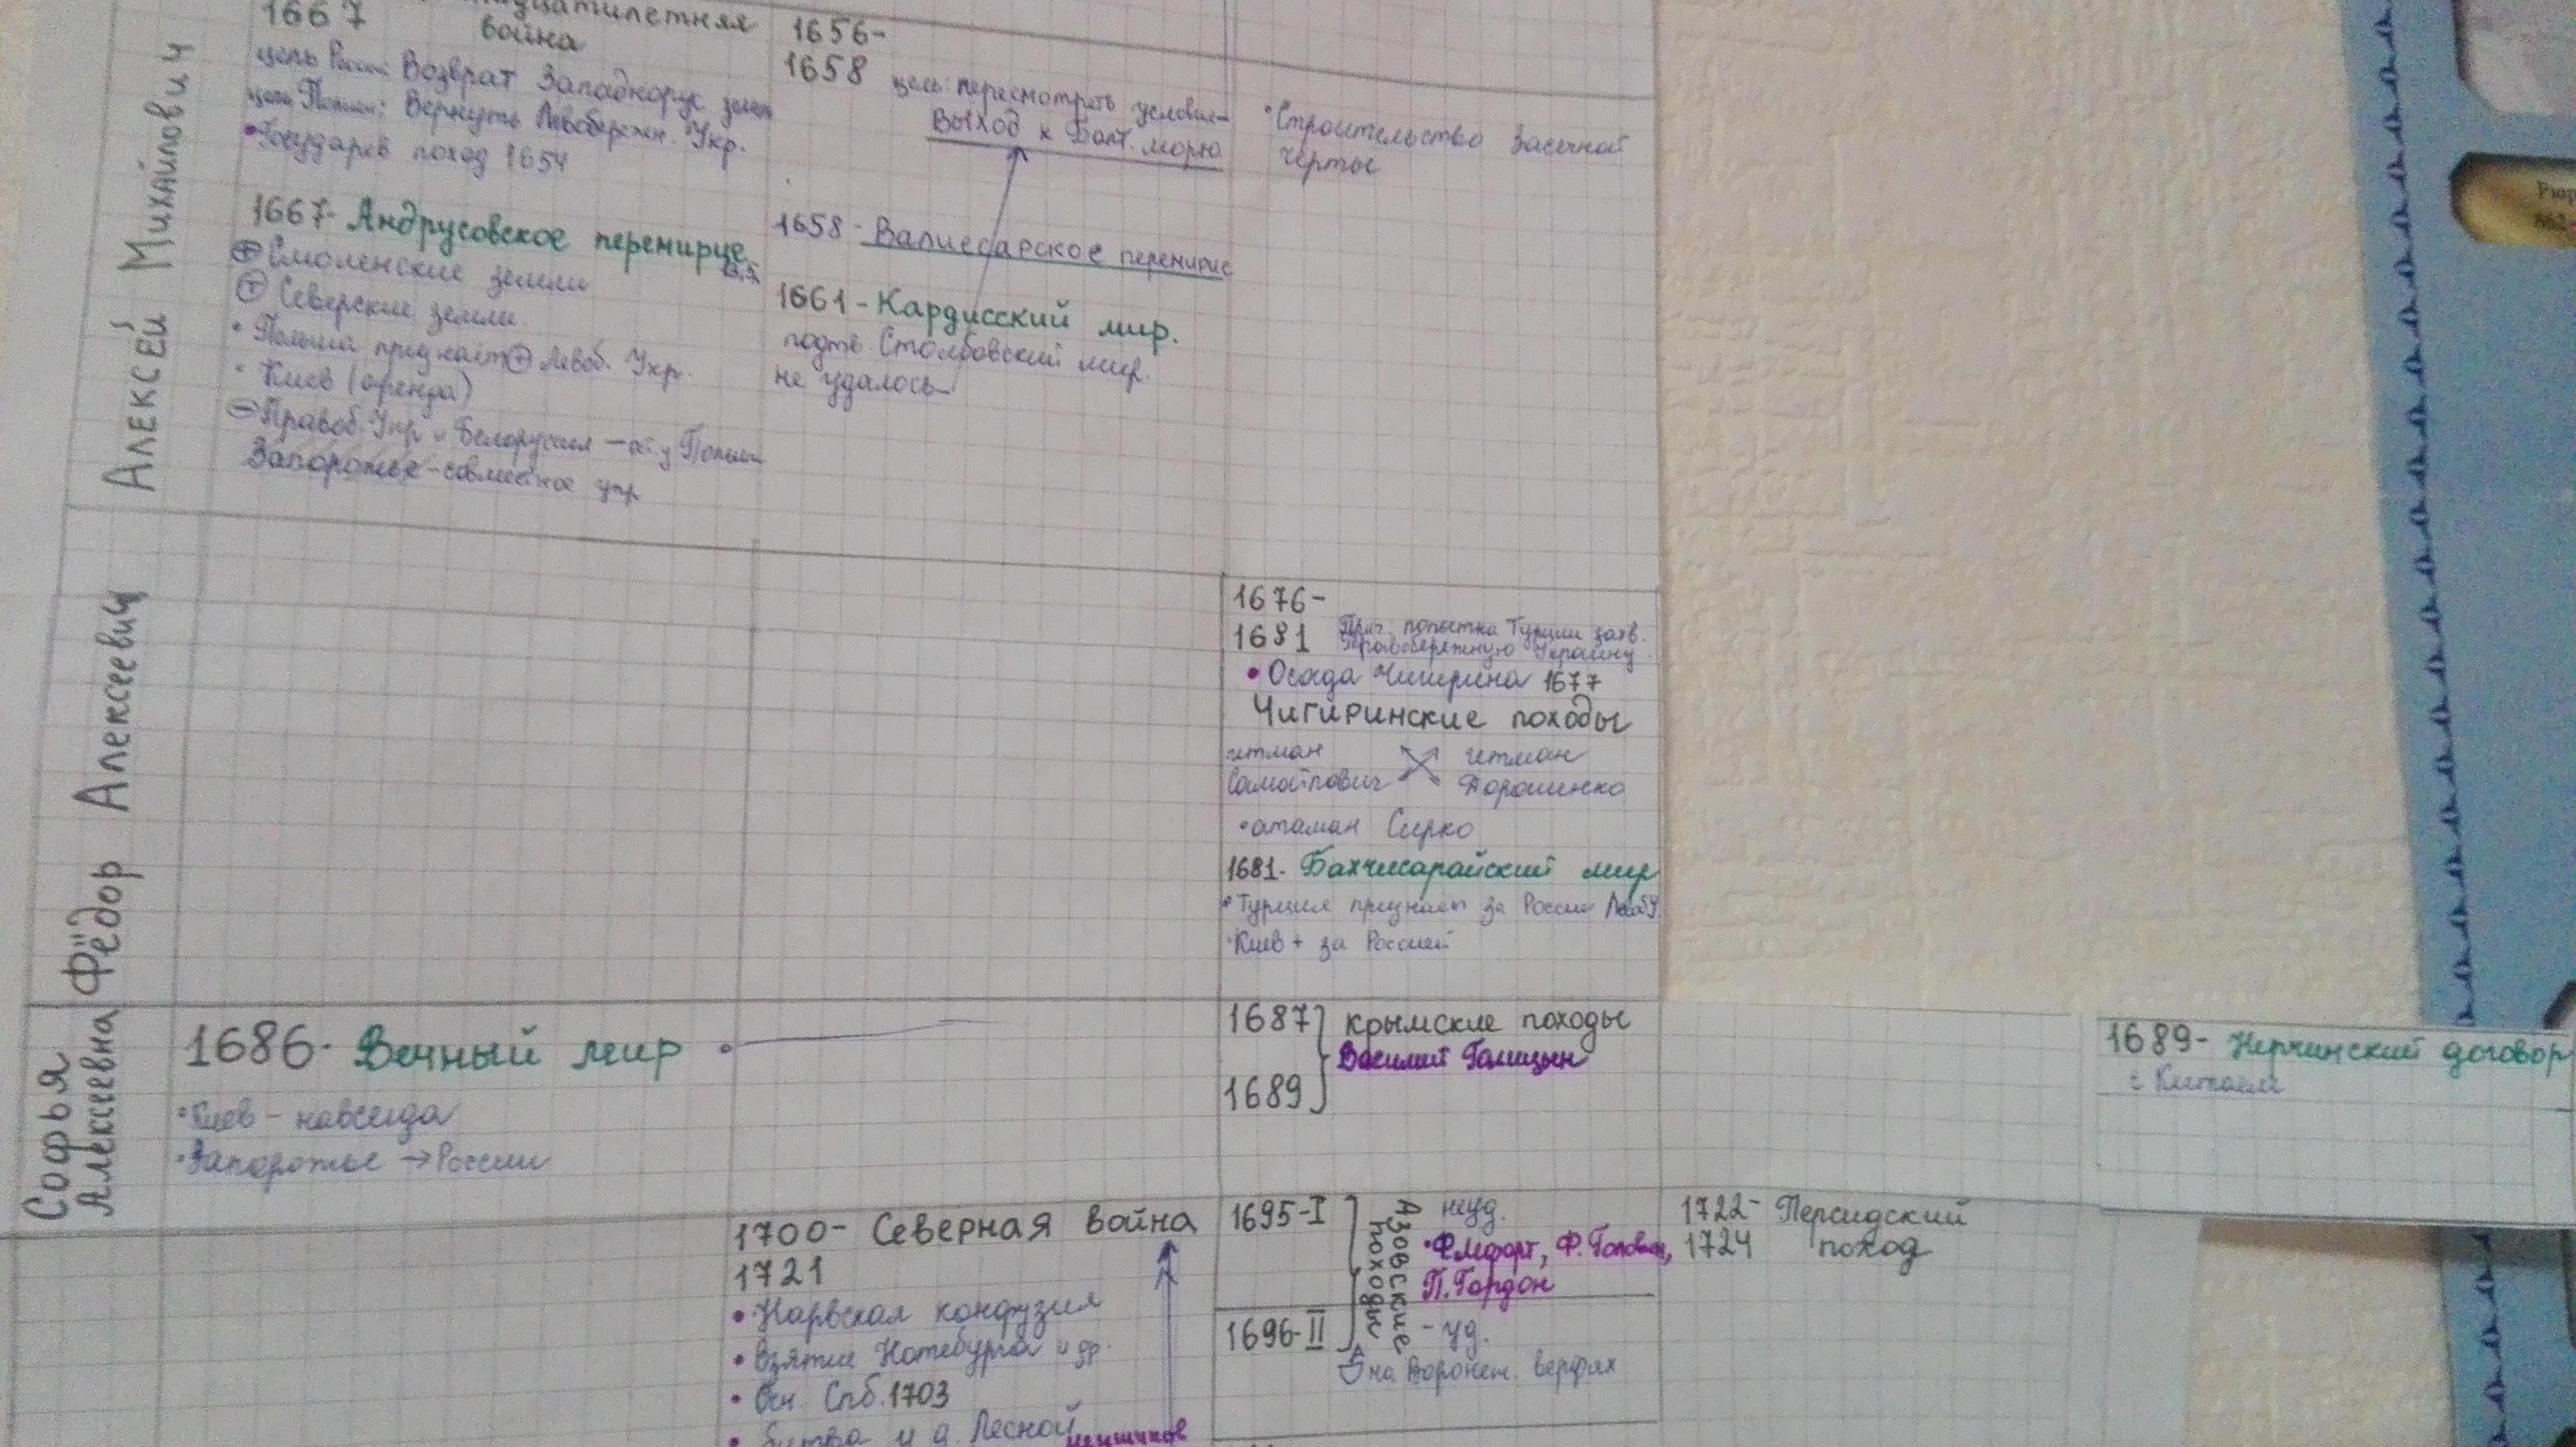 Алексей Михайлович
1667
война
цель России: Возврат Западнорус земель
цель Польши: Вернуть Левобережн. Укр.
•Государев поход 1654
1667- Андрусовское перемирие
⊕Смоленские земли
⊕ Северские земли
• Польша признаёт⊕ Левоб. Укр.
• Киев (аренда)
⊖Правоб. Укр и Белоруссия – ост у Польши
Запорожье-совместное упр
1656-
1658 цель: пересмотреть условие-
Выход к Балт. морю
1658- Валиесарское перемирие
1661- Кардисский мир.
подтв. Столбовский мир.
не удалось
•Строительство Засечной
черты
Фёдор Алексеевич
1676-
1681 Прич: попытка Турции захв.
Правобережную Украину
•Осада Чигирина 1677
Чигиринские походы
гетман гетман
Самойлович Дорошенко
•атаман Сирко
1681- Бахчисарайский мир
•Турция признаёт за Россией
•Киев + за Россией
Софья
Алексеевна
1686- Вечный мир
•Киев – навсегда
•Запорожье → России
1687 Крымские походы
Василий Голицын
1689
1689- Нерчинский договор
с Китаем
1700- Северная война
1721
•Нарвская конфузия
•Взятие Нотебурга и др.
•Осн. Спб. 1703
•битва у д. Лесной
Меншиков
1695-I неуд.
Азовские
походы
•Ф. Лефорт, Ф. Головин,
П. Гордон
1696-II - уд.
на Воронеж. верфях
1722- Персидский
1724 поход